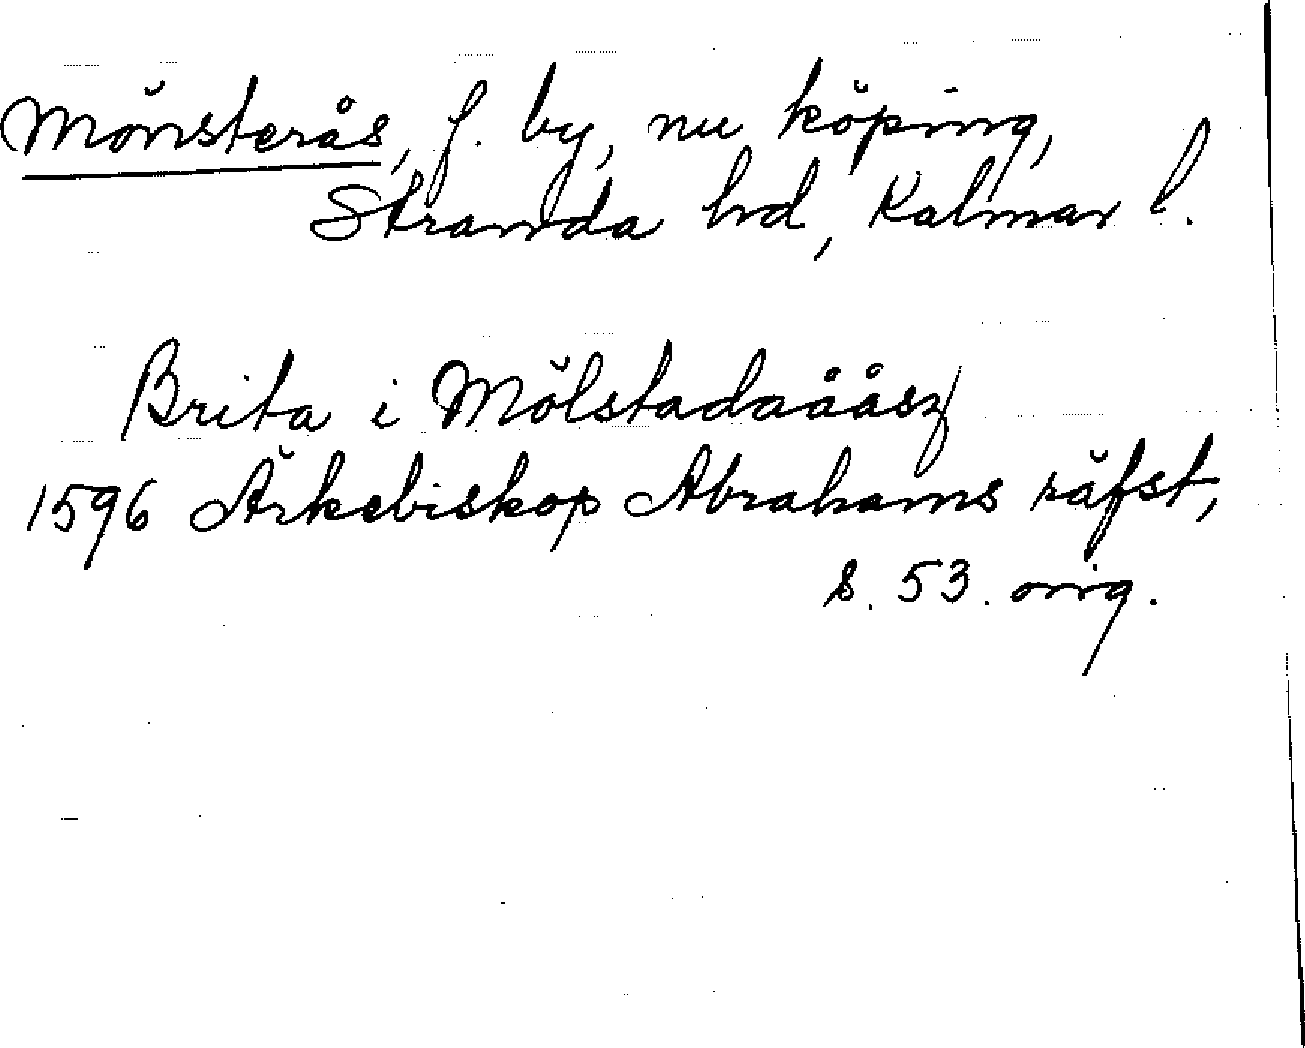 Mönsterås, f. by, nu köping,
Stranda hd, Kalmar l.
Brita i Mölstadaååsz
1596 Ärkebiskop Abrahams räfst,
s. 53. orig.